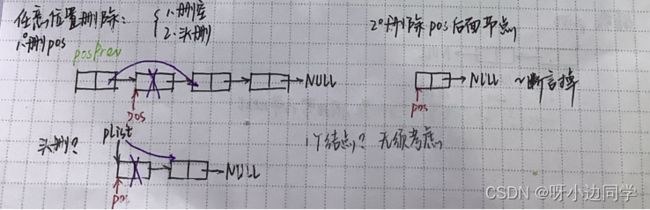 任意位置删除:
{ 1.删空
2.头删
1°删pos
posPrev
NULL
pos
2°删除pos后面节点
NULL
pos
~断言掉
头删?
pList
NULL
pos
1个结点? 无须考虑
CSDN @呀小边同学